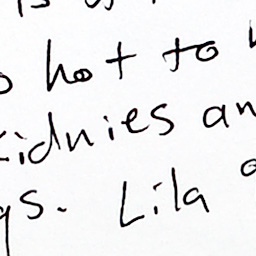 is
hot to
kidnies an
gs. Lila